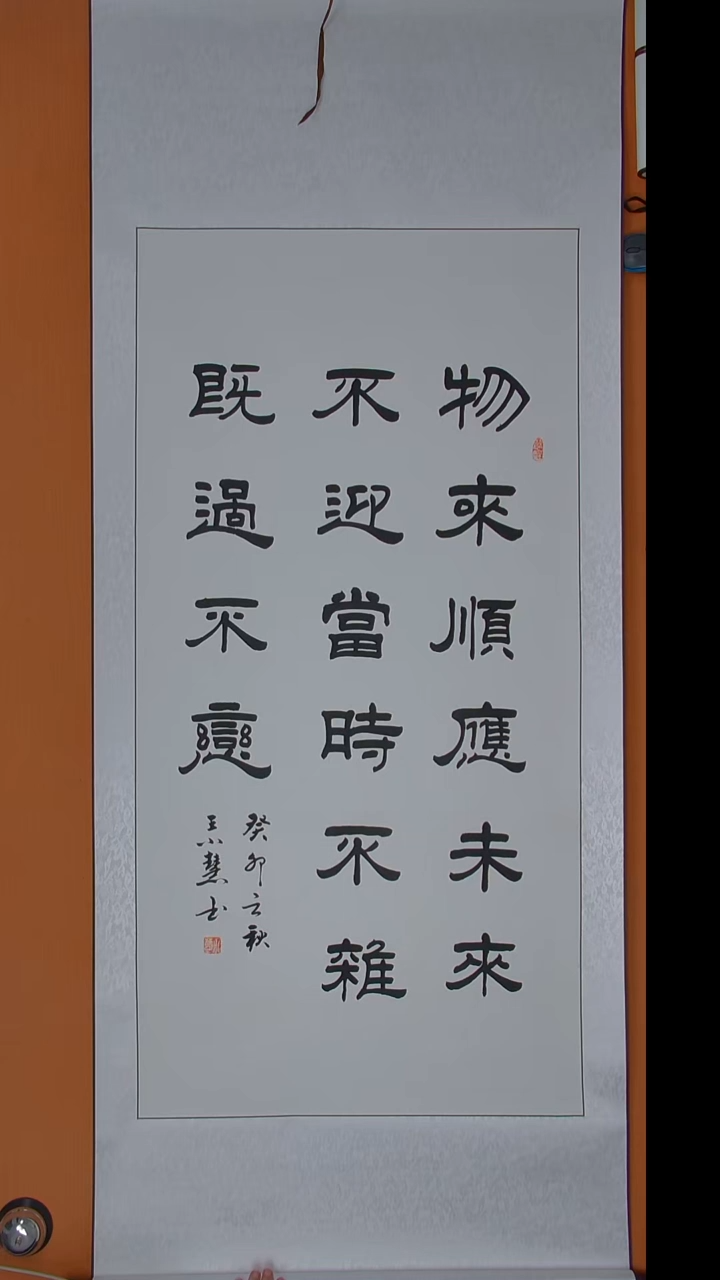 物來順應未來
不迎當時不雜
既過不戀
癸卯立秋
王小慧书